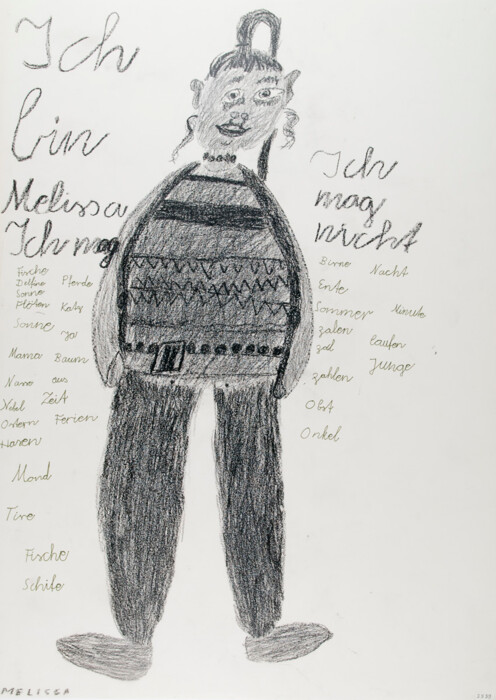 Ich
bin
Melissa
Ich mag
Fische
Delfine Pferde
Sonne
Flöten Katz
Sonne ja
Mama Baum
Nano aus
Zeit
Ostern Ferien
Hasen
Mond
Tire
Fische
Schife
Ich
mag
nicht
Birne Nacht
Ente
Sommer Minute
zalen
zal laufen
zählen Junge
Obst
Onkel
MELISSA